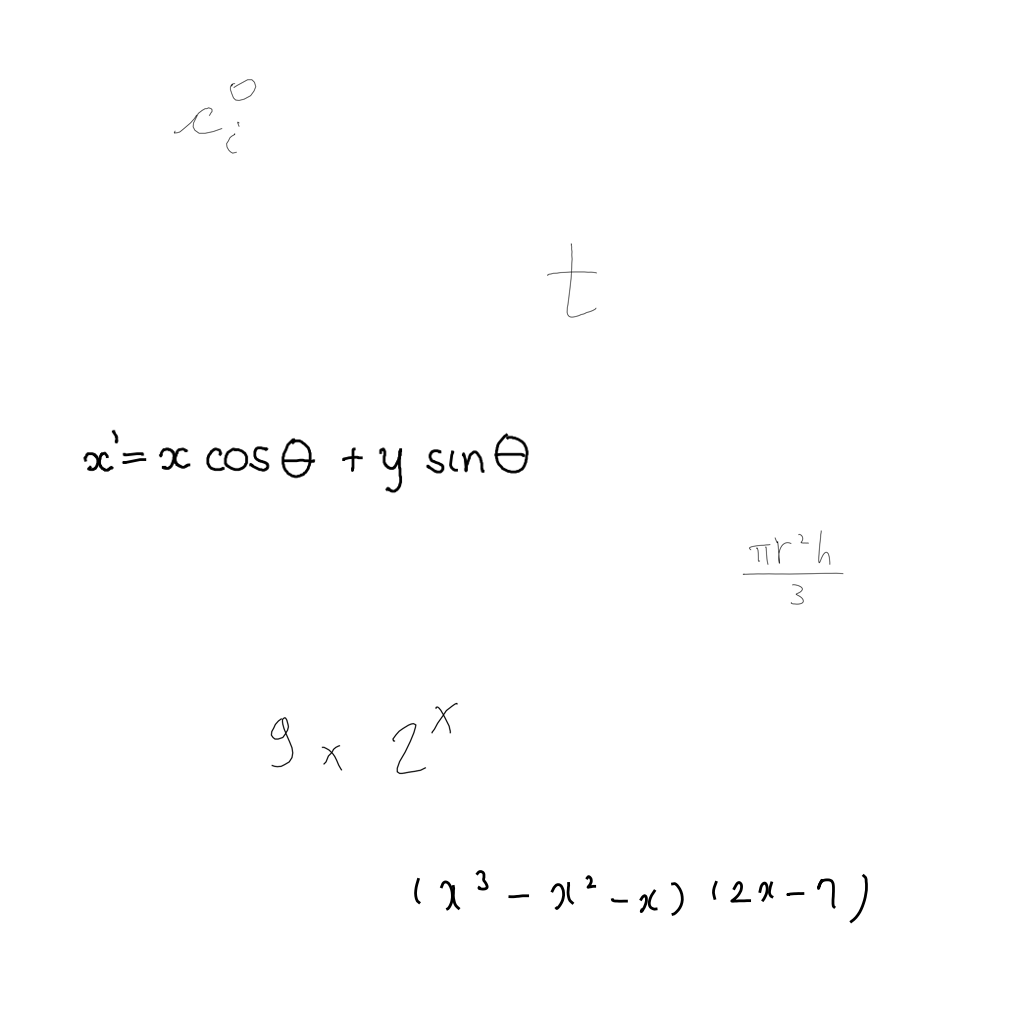 c_i^0
t
x' = x cos θ + y sin θ
πr²h / 3
9 × 2^x
(x³ - x² - x) (2x - 7)